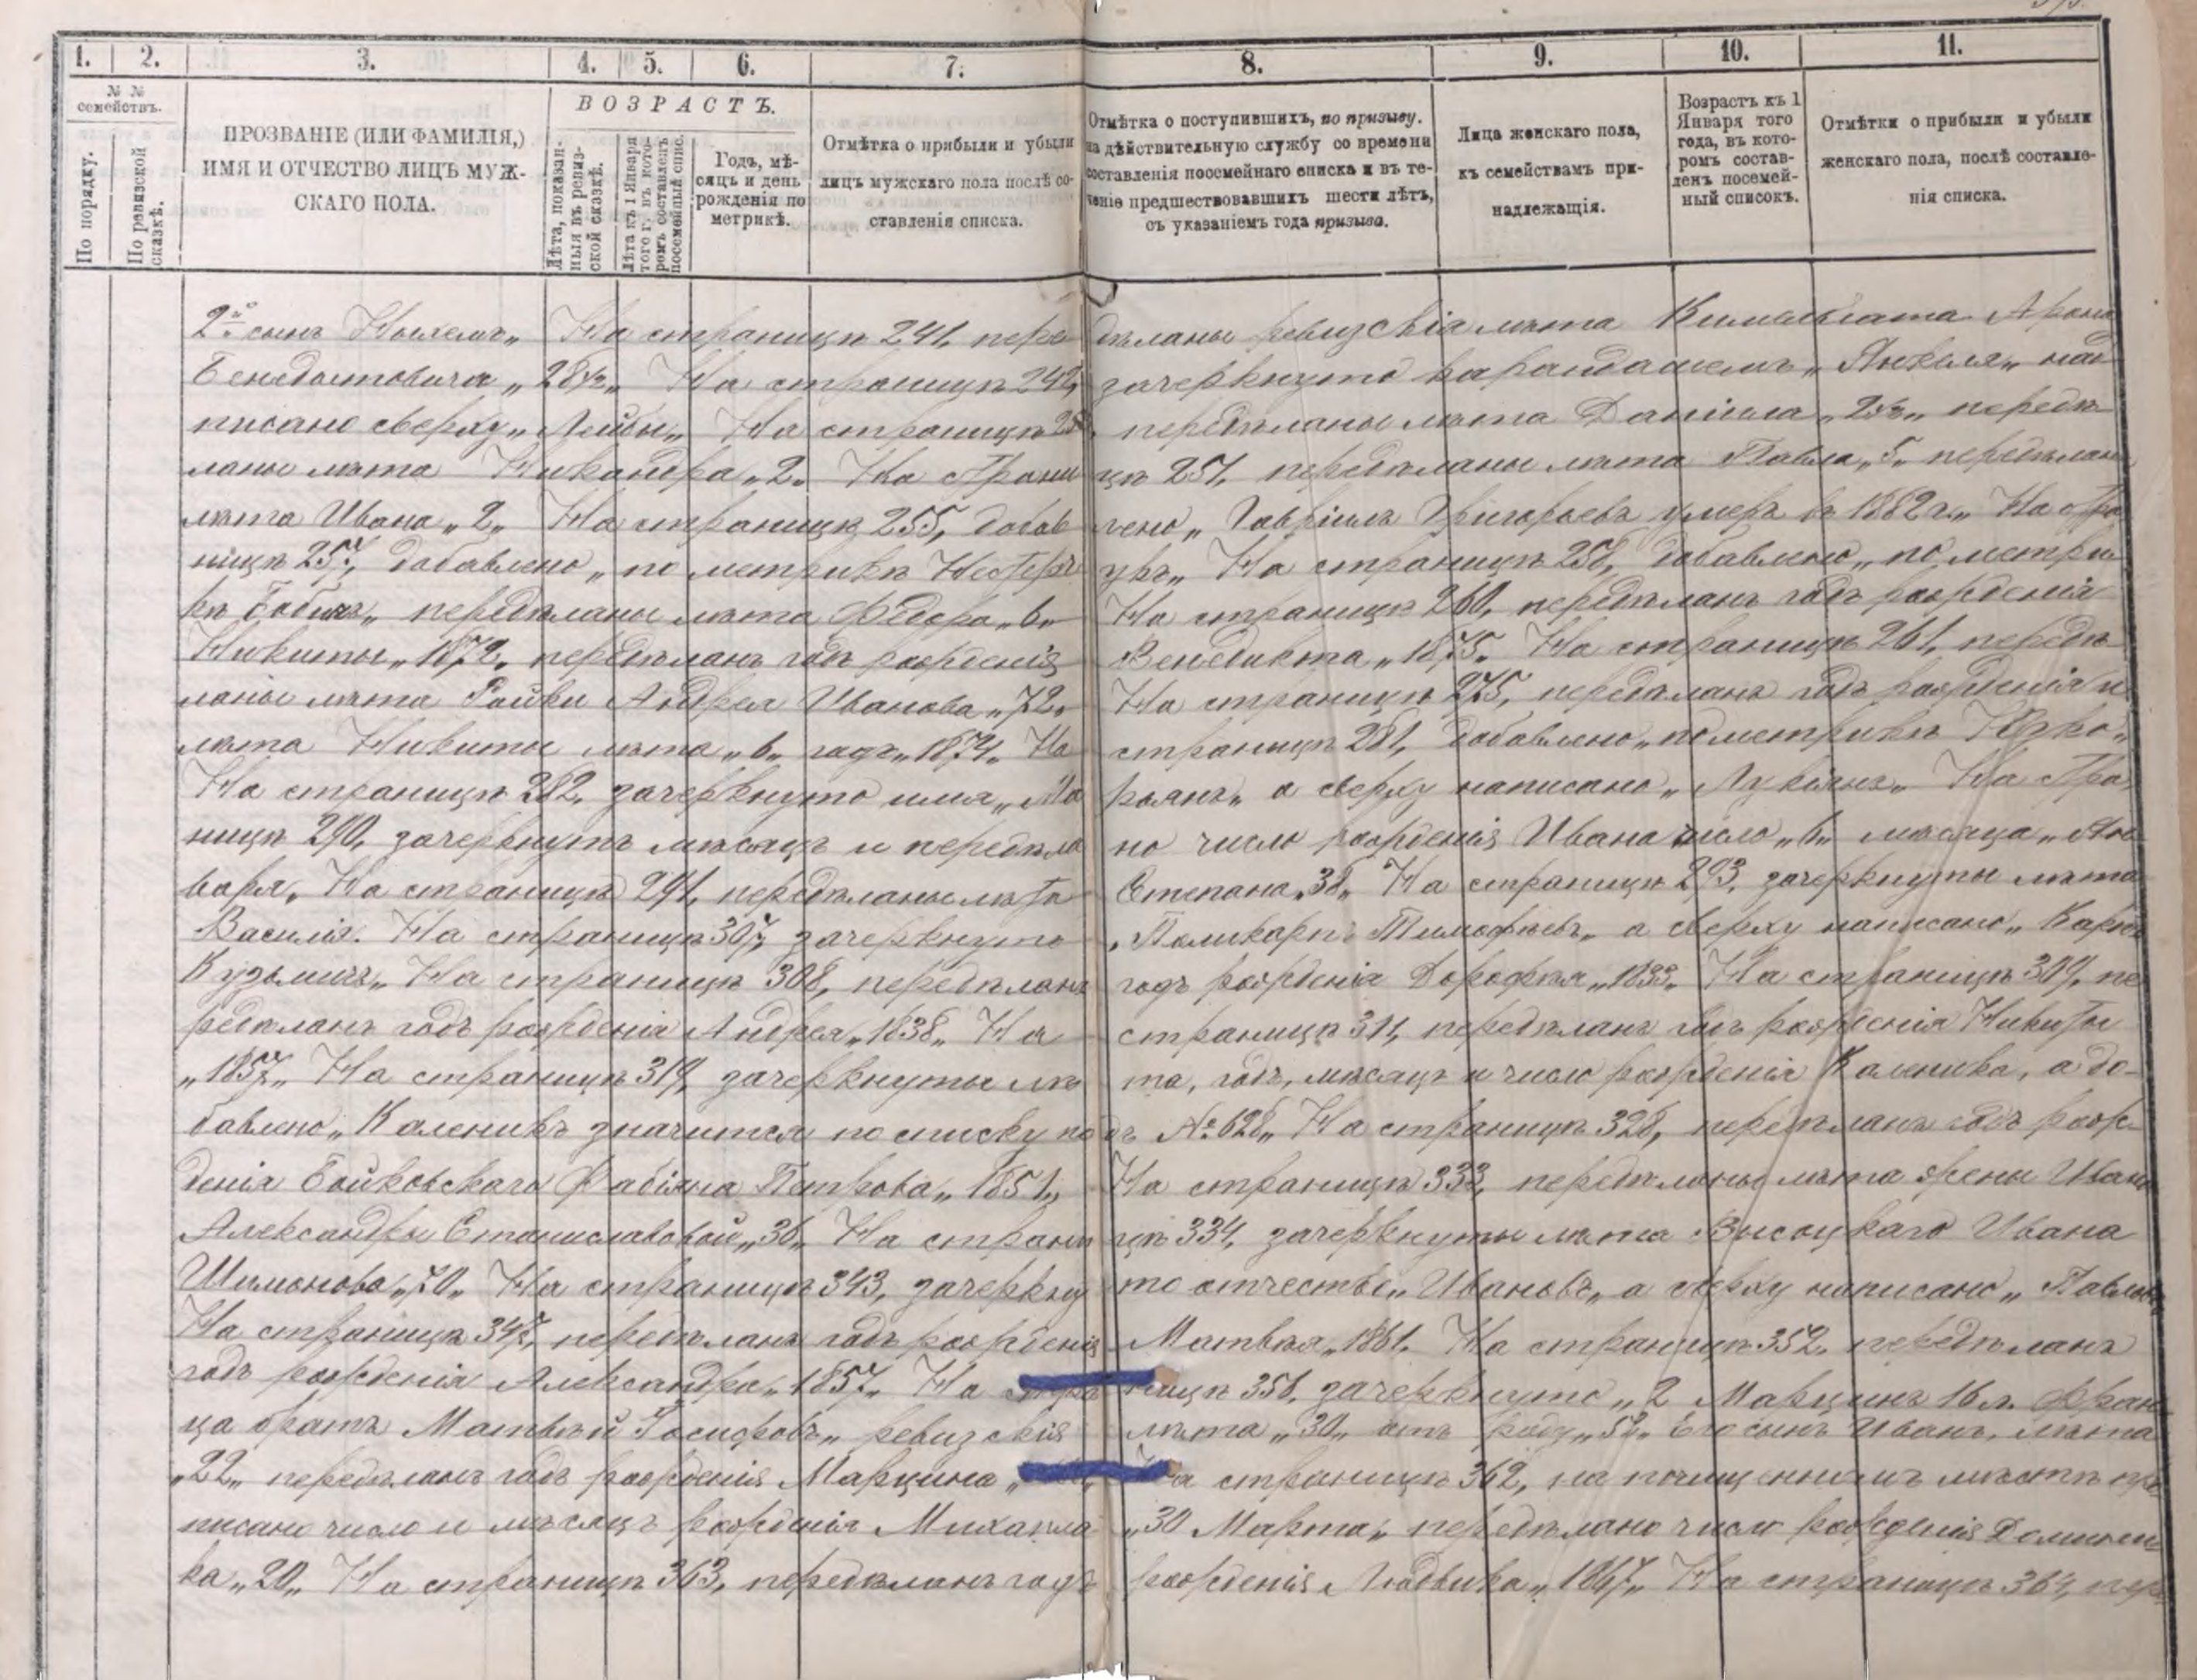 1. 2. 3. 4. 5. 6. 7. 8. 9. 10. 11.
№ № семействъ.
По порядку.
По ревизской сказкѣ.
ПРОЗВАНІЕ (ИЛИ ФАМИЛІЯ,)
ИМЯ И ОТЧЕСТВО ЛИЦЪ МУЖ-
СКАГО ПОЛА.
ВОЗРАСТЪ.
Лѣта, показан-
ныя въ ревиз-
ской сказкѣ.
Лѣта къ 1 Января
того г. въ кото-
ромъ составленъ
посемейный спис.
Годъ, мѣ-
сяцъ и день
рожденія по
метрикѣ.
Отмѣтка о прибыли и убыли
лицъ мужскаго пола послѣ со-
ставленія списка.
Отмѣтка о поступившихъ, по призыву.
на дѣйствительную службу со времени
составленія посемейнаго списка и въ те-
ченіе предшествовавшихъ шести лѣтъ,
съ указаніемъ года призыва.
Лица женскаго пола,
къ семействамъ при-
надлежащія.
Возрастъ къ 1
Января того
года, въ кото-
ромъ состав-
ленъ посемей-
ный списокъ.
Отмѣтки о прибыли и убыли
женскаго пола, послѣ составле-
нія списка.
2й сынъ На страницѣ 241, передѣланы ревизскія лѣта Арона
28½„ На страницѣ 242, зачеркнуто карандашемъ „Янкеля„ на
писано сверху „Лейбы„ На страницѣ передѣланы лѣта Даніила передѣ
ланы лѣта Никандра „2„ На страницѣ 251, передѣланы лѣта Павла „5„ передѣланы
лѣта Ивана „2„ На страницѣ 255, добавлено „Гавріилъ Григорьевъ умеръ въ 1882 г.„ На стра
ницѣ 257, добавлено „по метрикѣ На страницѣ 258, добавлено „по метри
кѣ передѣланы лѣта Федора „6„ На страницѣ 260, передѣланъ годъ рожденія
Никиты „1872„ передѣланъ годъ рожденія Венедикта „1875„ На страницѣ 261, передѣ
ланы лѣта Андрея Иванова „72„ На страницѣ 275, передѣланъ годъ рожденія и
лѣта Никиты лѣта „6„ годъ „1874„ На страницѣ 281, добавлено „по метрикѣ
На страницѣ 282, зачеркнуто имя „Ма рьянъ„ а сверху написано „Лукіянъ„ На стра
ницѣ 290, зачеркнутъ мѣсяцъ и передѣла но число рожденія Ивана число „6„ мѣсяца „Ян
варя„ На страницѣ 291, передѣланы лѣта Степана „38„ На страницѣ 293, зачеркнуты лѣта
Василія. На страницѣ 307, зачеркнуто „Поликарпъ Тимофѣевъ„ а сверху написано „Карпъ
Кузьмичъ„ На страницѣ 308, передѣланъ годъ рожденія Дорофѣя „1833„ На страницѣ 309, пе
редѣланъ годъ рожденія Андрея „1838„ На страницѣ 311, передѣланъ годъ рожденія Никиты
„1857„ На страницѣ 319, зачеркнуты лѣ та, годъ, мѣсяцъ и число рожденія Каленика, а до-
бавлено „Каленикъ значится по списку подъ № 628„ На страницѣ 328, передѣланъ годъ рож
денія Бойковскаго Фабіяна Петрова „1851„ На страницѣ 333, передѣланы лѣта жены Ивана
Александры Станиславовой „36„ На страни цѣ 334, зачеркнуты лѣта Высоцкаго Ивана
Шимонова „70„ На страницѣ 343, зачеркну то отчество „Ивановъ„ а сверху написано „Павловъ
На страницѣ 347, передѣланъ годъ рожденія Матвѣя „1861„ На страницѣ 352, передѣланъ
годъ рожденія Александра „1857„ На стра ницѣ 358, зачеркнуто „2 Марцинъ 16 л. Фран
ца братъ Матвѣй Іосифовъ„ ревизскія лѣта „30„ отъ роду „52„ Его сынъ Иванъ, лѣта
„22„ передѣланъ годъ рожденія Марцина На страницѣ 362, на почищенномъ мѣстѣ на
писано число и мѣсяцъ рожденія Михаила „30 Марта„ передѣлано число рожденія Домини
ка „20„ На страницѣ 363, передѣланъ годъ рожденія Людвика „1867„ На страницѣ 364, пер